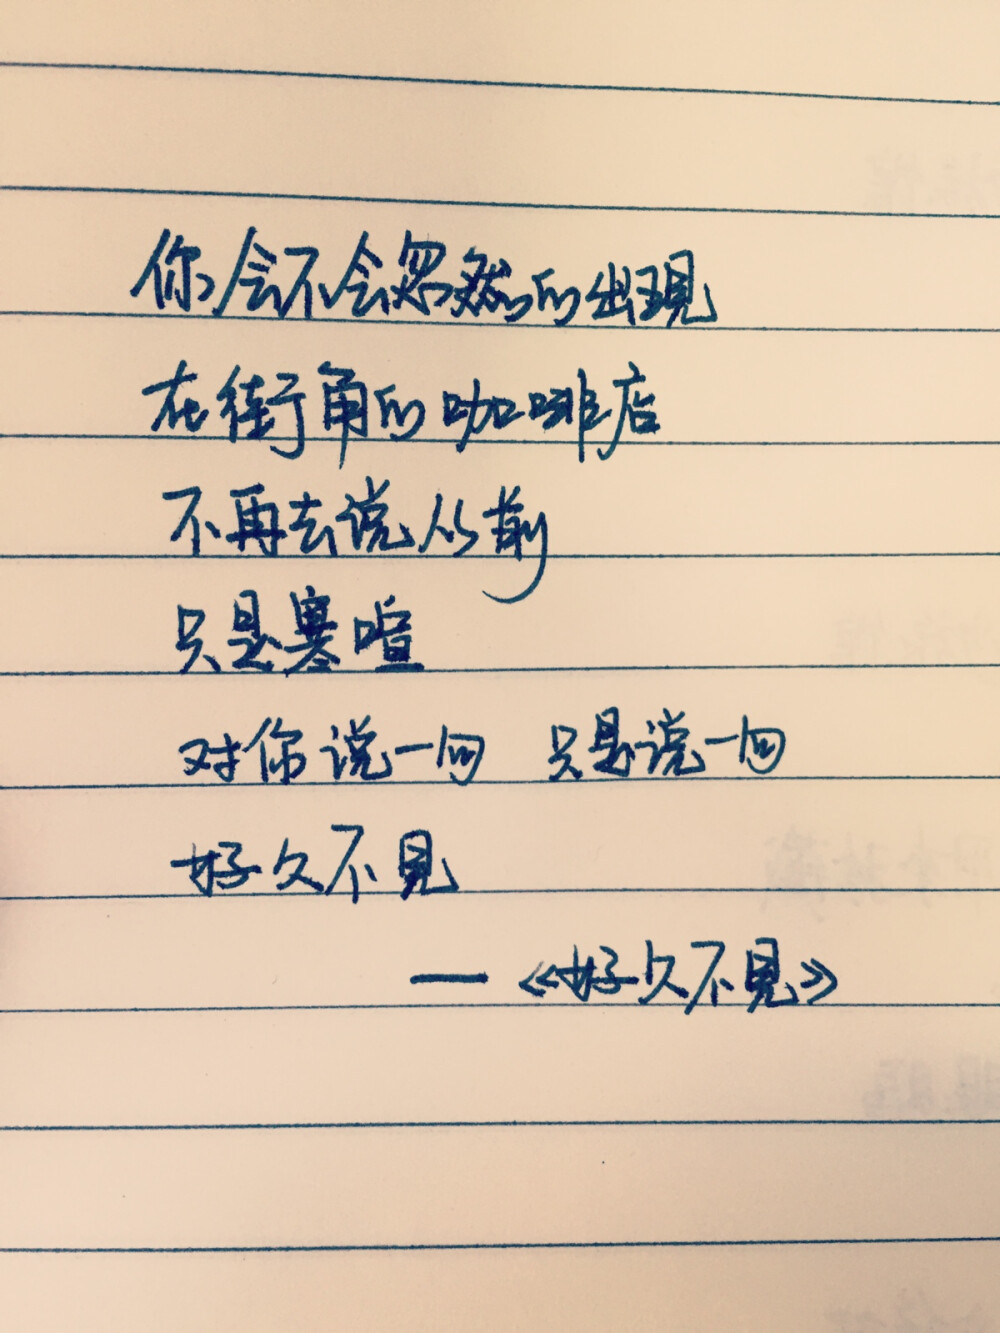 你会不会忽然的出現
在街角的咖啡店
不再去说从前
只是寒喧
对你说一句 只是说一句
好久不見
—《好久不見》